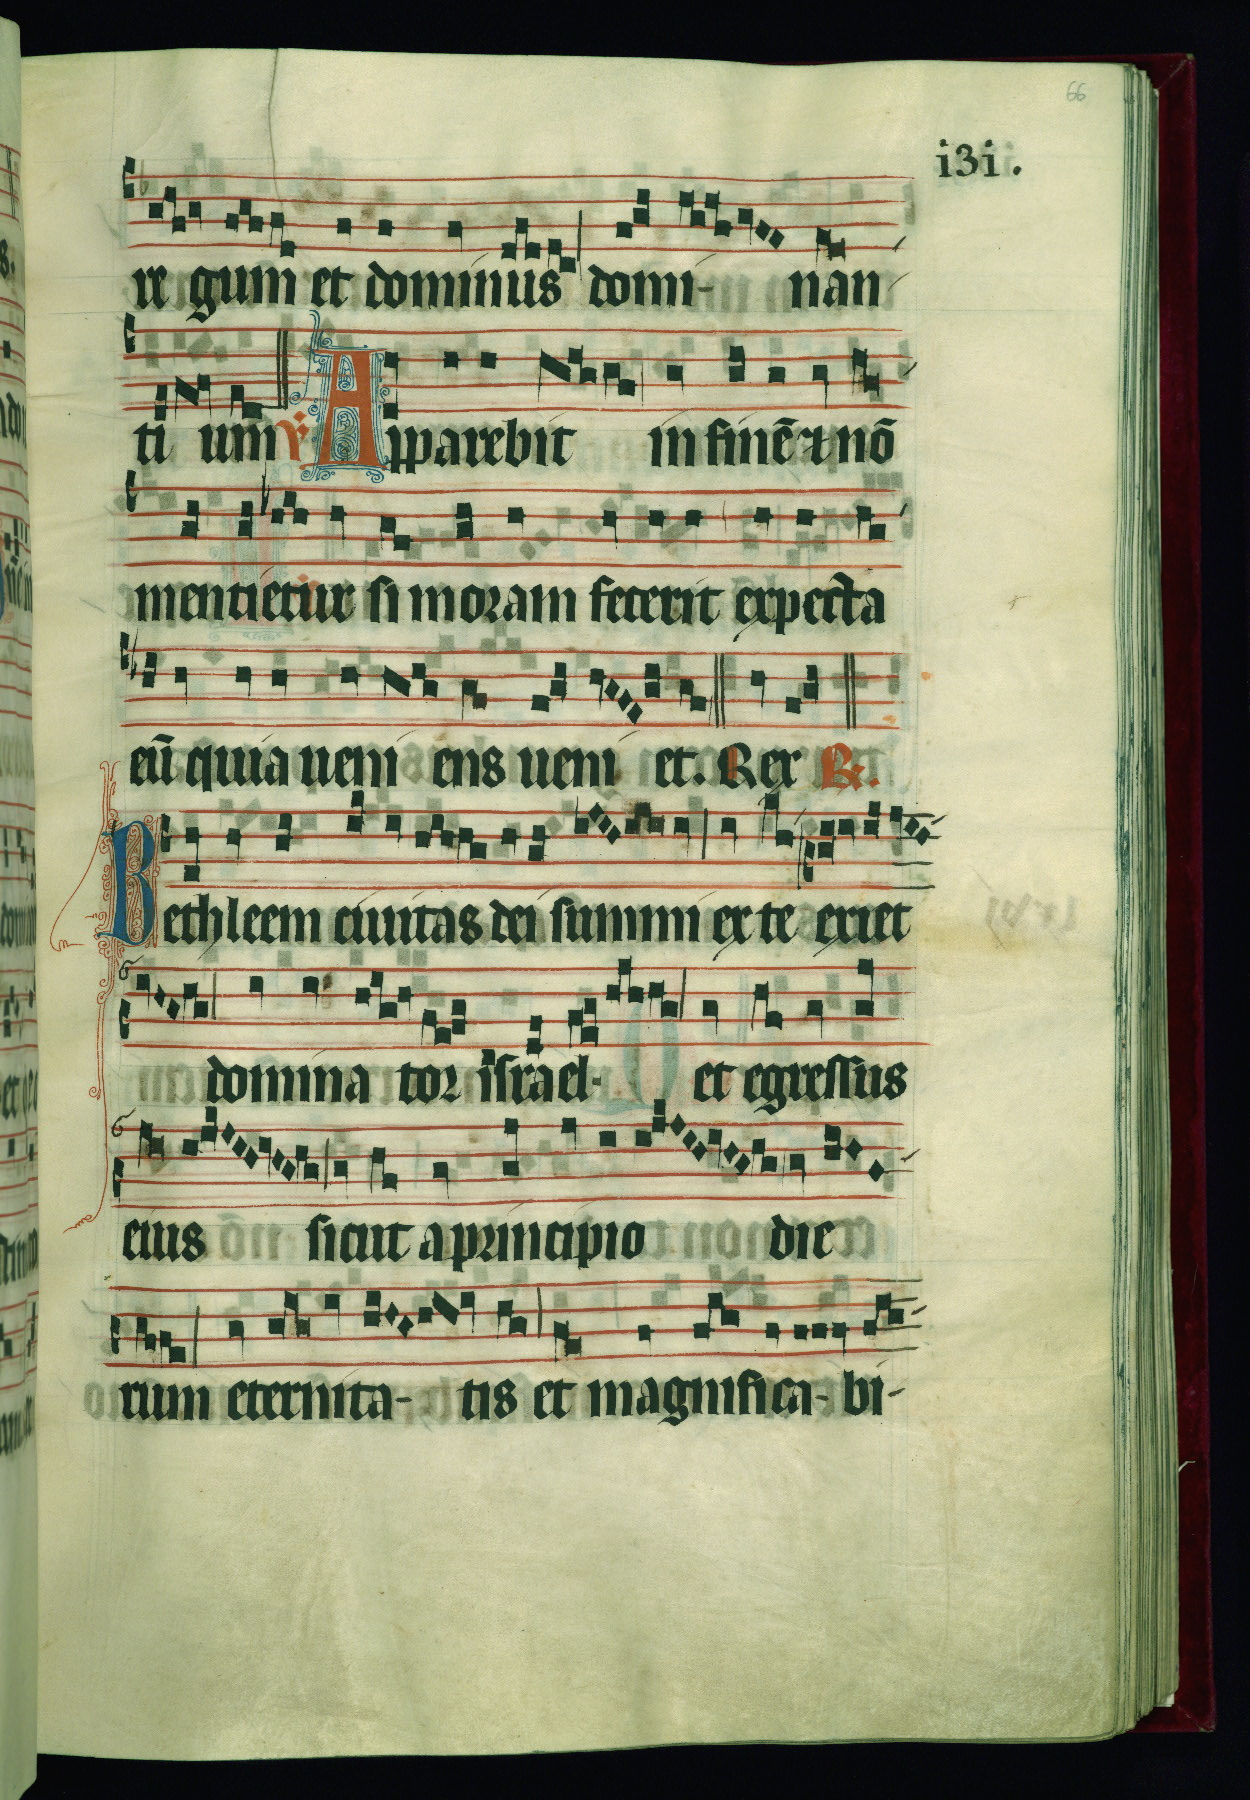 66
i3i.
re gum et dominus domi- nan
ti um ℣. Apparebit in finē ⁊ nō
mentietur si moram fecerit expecta
eū quia ueni ens ueni et. Rex ℟.
Bethleem ciuitas dei summi ex te exiet
domina tor israel· et egressus
eius sicut a principio die
rum eternita- tis et magnifica- bi-